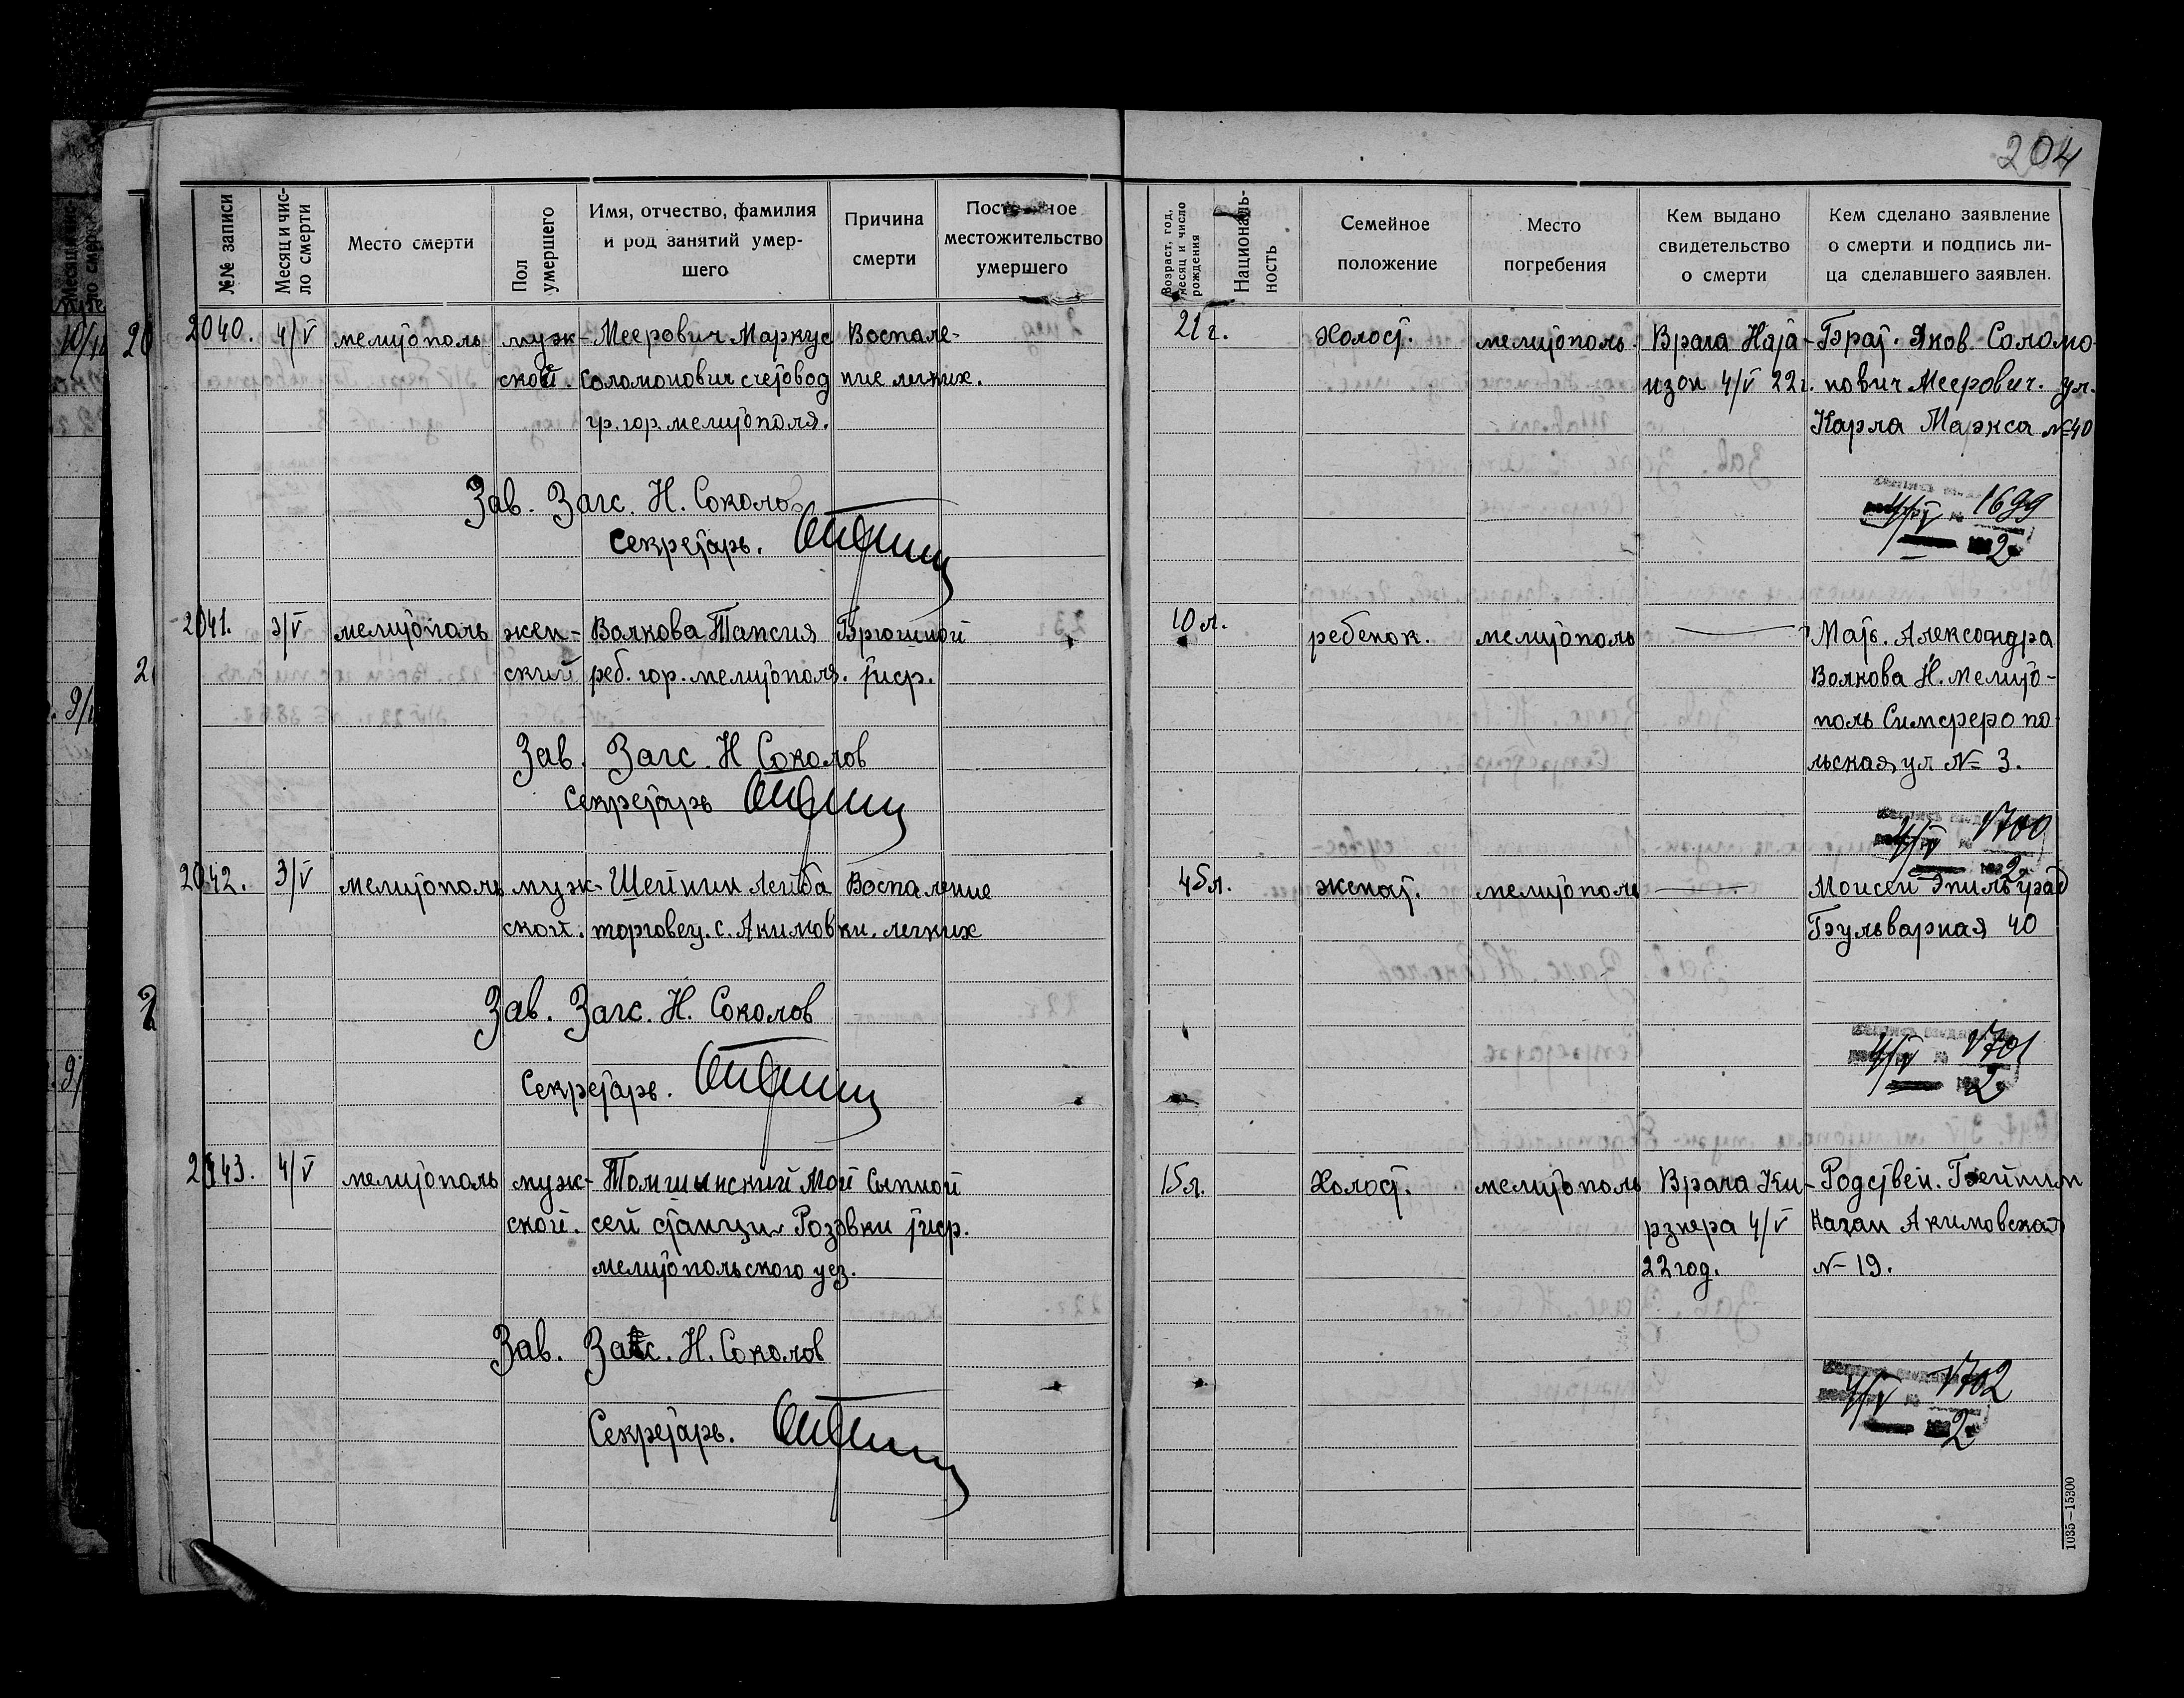 204
№№ записи
Месяц и чис-
ло смерти
Место смерти
Пол
умершего
Имя, отчество, фамилия
и род занятий умер-
шего
Причина
смерти
местожительство
умершего
Возраст, год,
месяц и число
рождения
Националь-
ность
Семейное
положение
Место
погребения
Кем выдано
свидетельство
о смерти
Кем сделано заявление
о смерти и подпись ли-
ца сделавшего заявлен.
2040. 4/V мелитополь муж- Меерович Маркус Воспале- 21 г. Холост. мелитополь. Врача Ната- Брат. Яков Соломо-
ской. Соломонович счетовод ние легких. нзон 4/V 22г. нович Меерович. ул.
гр. гор. мелитополя. Карла Маркса № 40
Зав. Загс. Н. Соколов
Секретарь.
4/V № 1699
2
2041. 3/V мелитополь жен- Волкова Таисия Брюшной 10 л. ребенок. мелитополь — Мать. Александра
ский реб. гор. мелитополя. тиф. Волкова Н. мелито-
поль Симферопо-
льская ул № 3.
Зав. Загс. Н Соколов
Секретарь
4/V 1700
2
2042. 3/V мелитополь муж- Шейнин Лейба Воспаление 45л. женат. мелитополь — Моисей
ской. торговец. с. Акимовки. легких Бульварная 40
Зав. Загс. Н. Соколов
Секретарь.
4/V № 1701
2
2043. 4/V мелитополь муж- Мой Сыпной 15л. Холост. мелитополь Врача Ки- Родствен.
ской. сей станции Розовки тиф. рзнера 4/V Акимовская
мелитопольского уез. 22 год. № 19.
Зав. Загс. Н. Соколов
Секретарь.
4/V № 1702
2
1035—15300